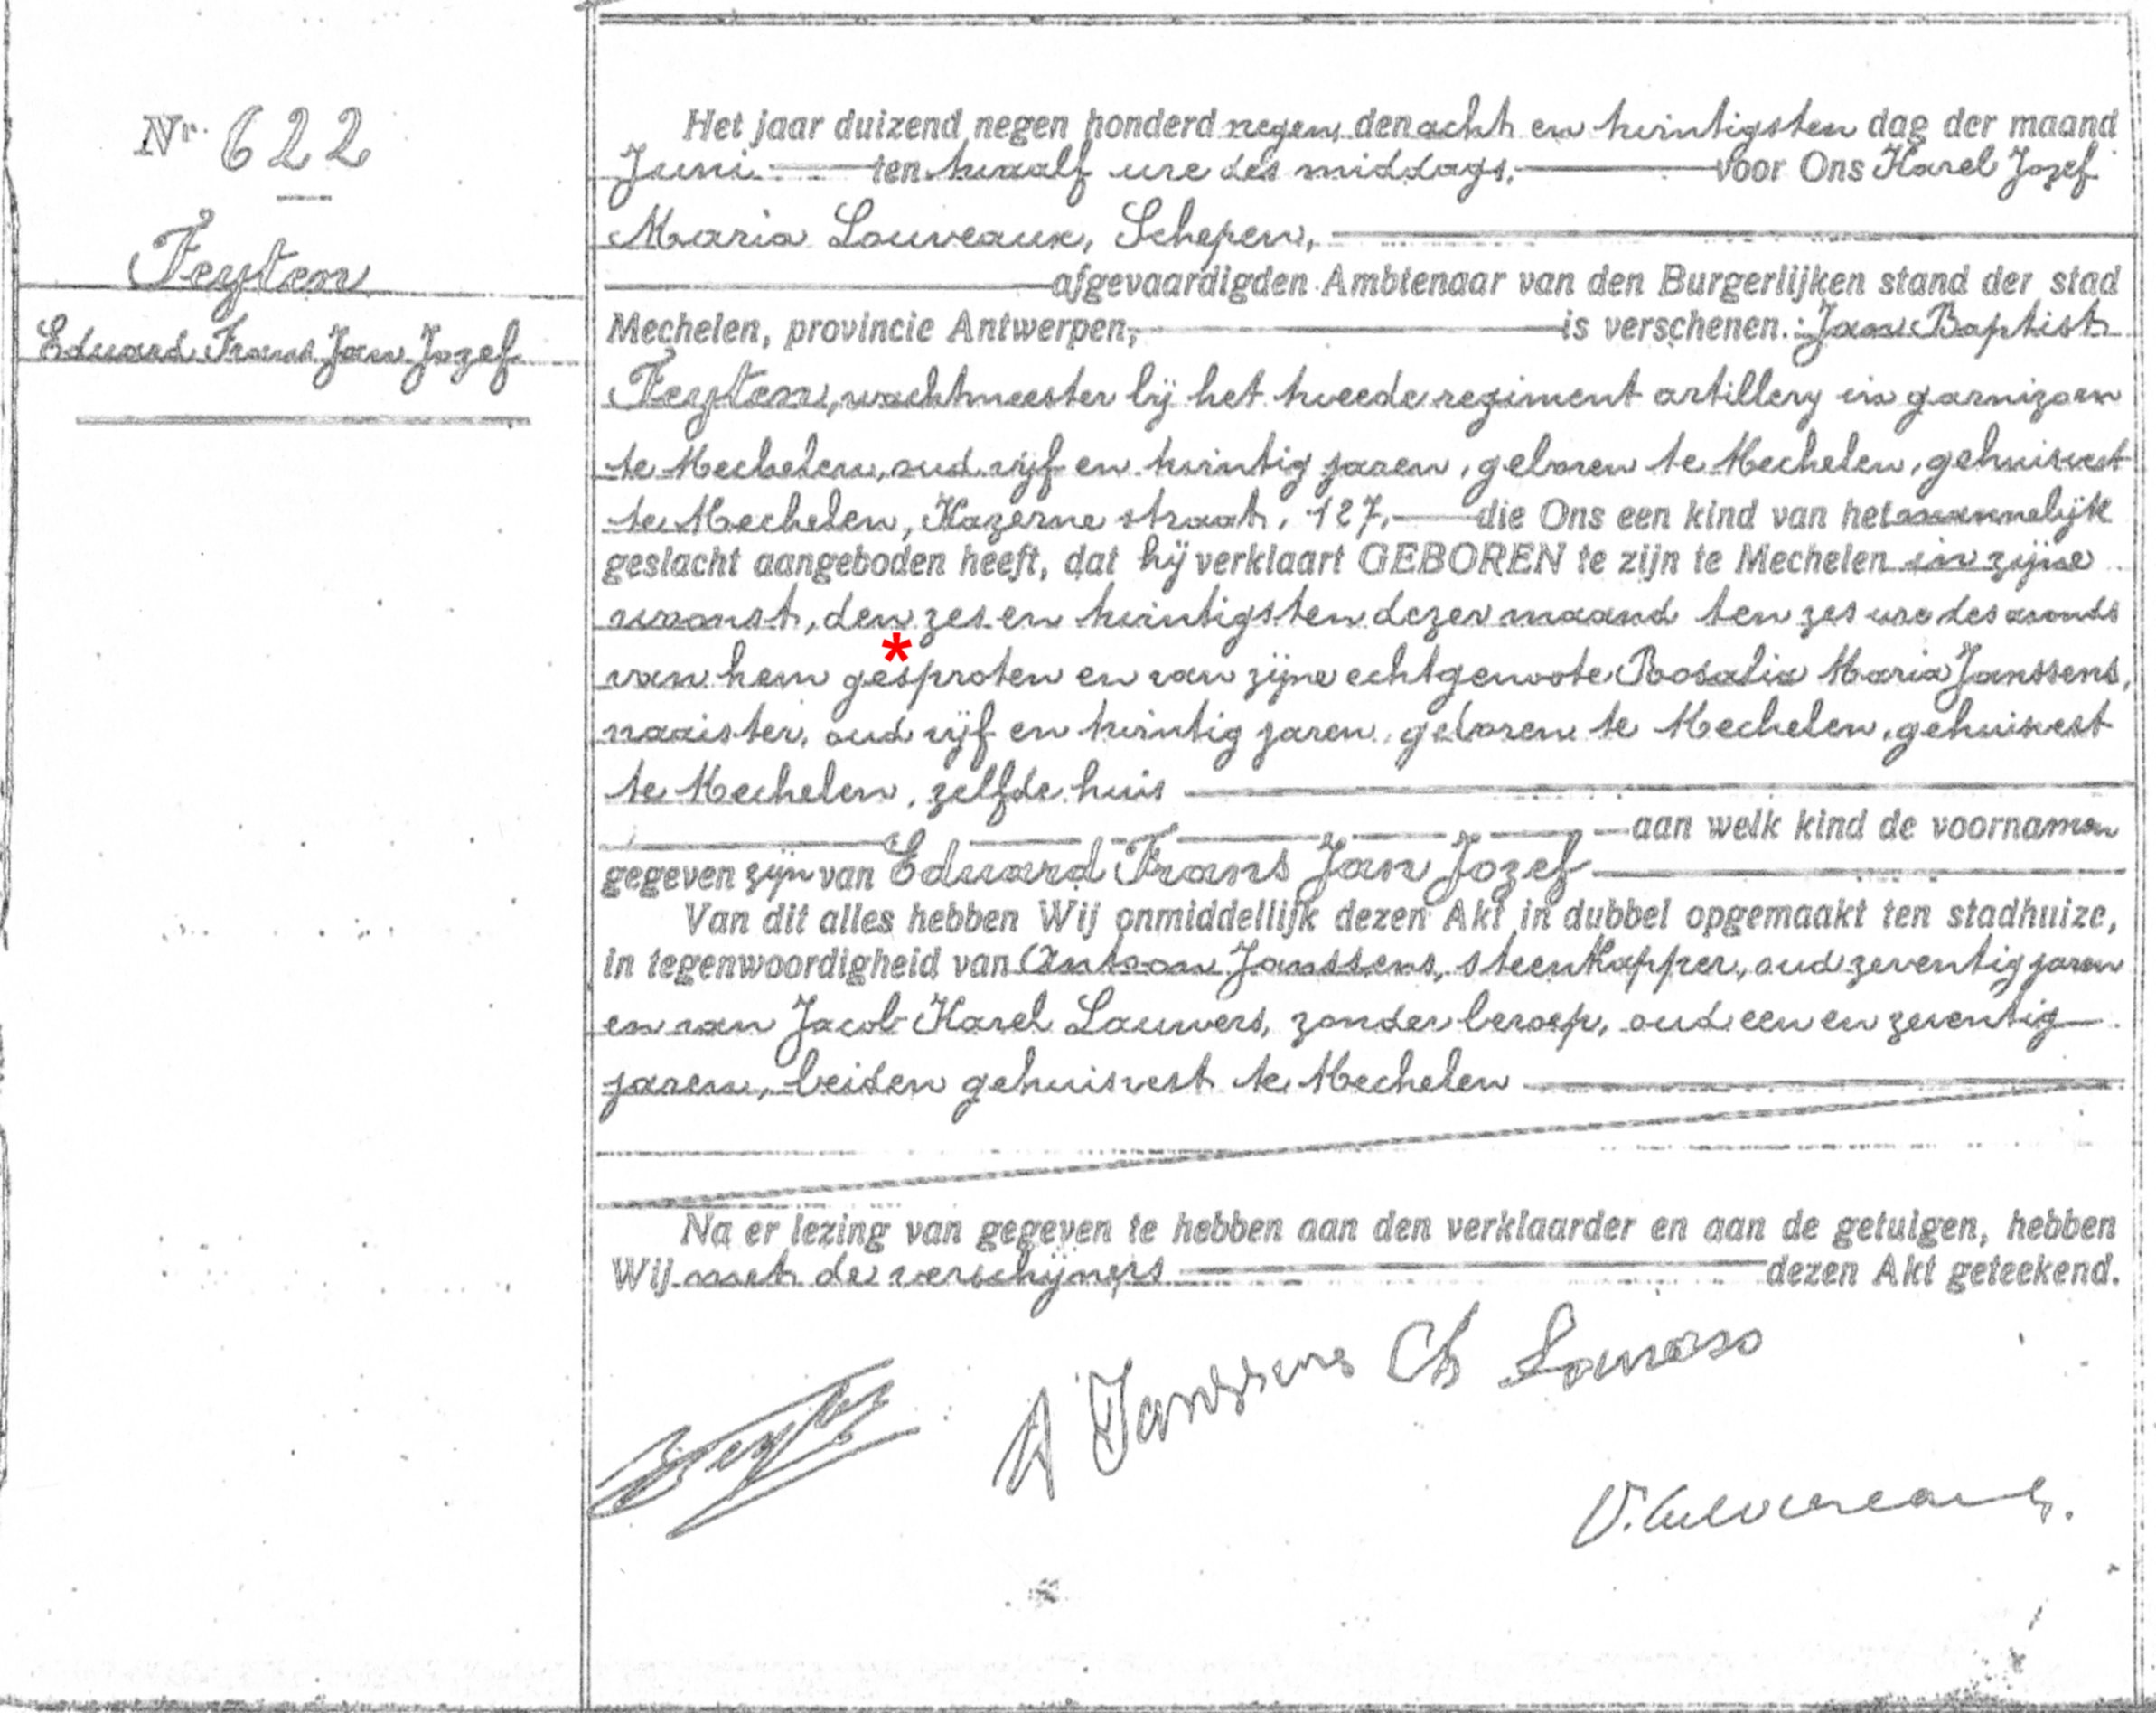 Nr. 622
Feyten
Eduard Frans Jan Jozef
Het jaar duizend negen honderd negen, den acht en twintigsten dag der maand
Juni ten twaalf ure des middags, voor Ons Karel Jozef
Maria Louveaux, Schepen,
afgevaardigden Ambtenaar van den Burgerlijken stand der stad
Mechelen, provincie Antwerpen, is verschenen : Jan Baptist
Feyten, wachtmeester bij het tweede regiment artillery in garnizoen
te Mechelen, oud vijf en twintig jaren, geboren te Mechelen, gehuisvest
te Mechelen, Kazerne straat, 127, die Ons een kind van het mannelijk
geslacht aangeboden heeft, dat hij verklaart GEBOREN te zijn te Mechelen in zijne
woonst, den zes en twintigsten dezer maand ten zes ure des avonds
*
van hem gesproten en van zijne echtgenoote Rosalia Maria Janssens,
naaister, oud vijf en twintig jaren, geboren te Mechelen, gehuisvest
te Mechelen, zelfde huis
aan welk kind de voornamen
gegeven zijn van Eduard Frans Jan Jozef
Van dit alles hebben Wij onmiddellijk dezen Akt in dubbel opgemaakt ten stadhuize,
in tegenwoordigheid van Antoon Janssens, steenkapper, oud zeventig jaren
en van Jacob Karel Lauwers, zonder beroep, oud een en zeventig
jaren, beiden gehuisvest te Mechelen
Na er lezing van gegeven te hebben aan den verklaarder en aan de getuigen, hebben
Wij met de verschijners dezen Akt geteekend.
A Janssens Ch